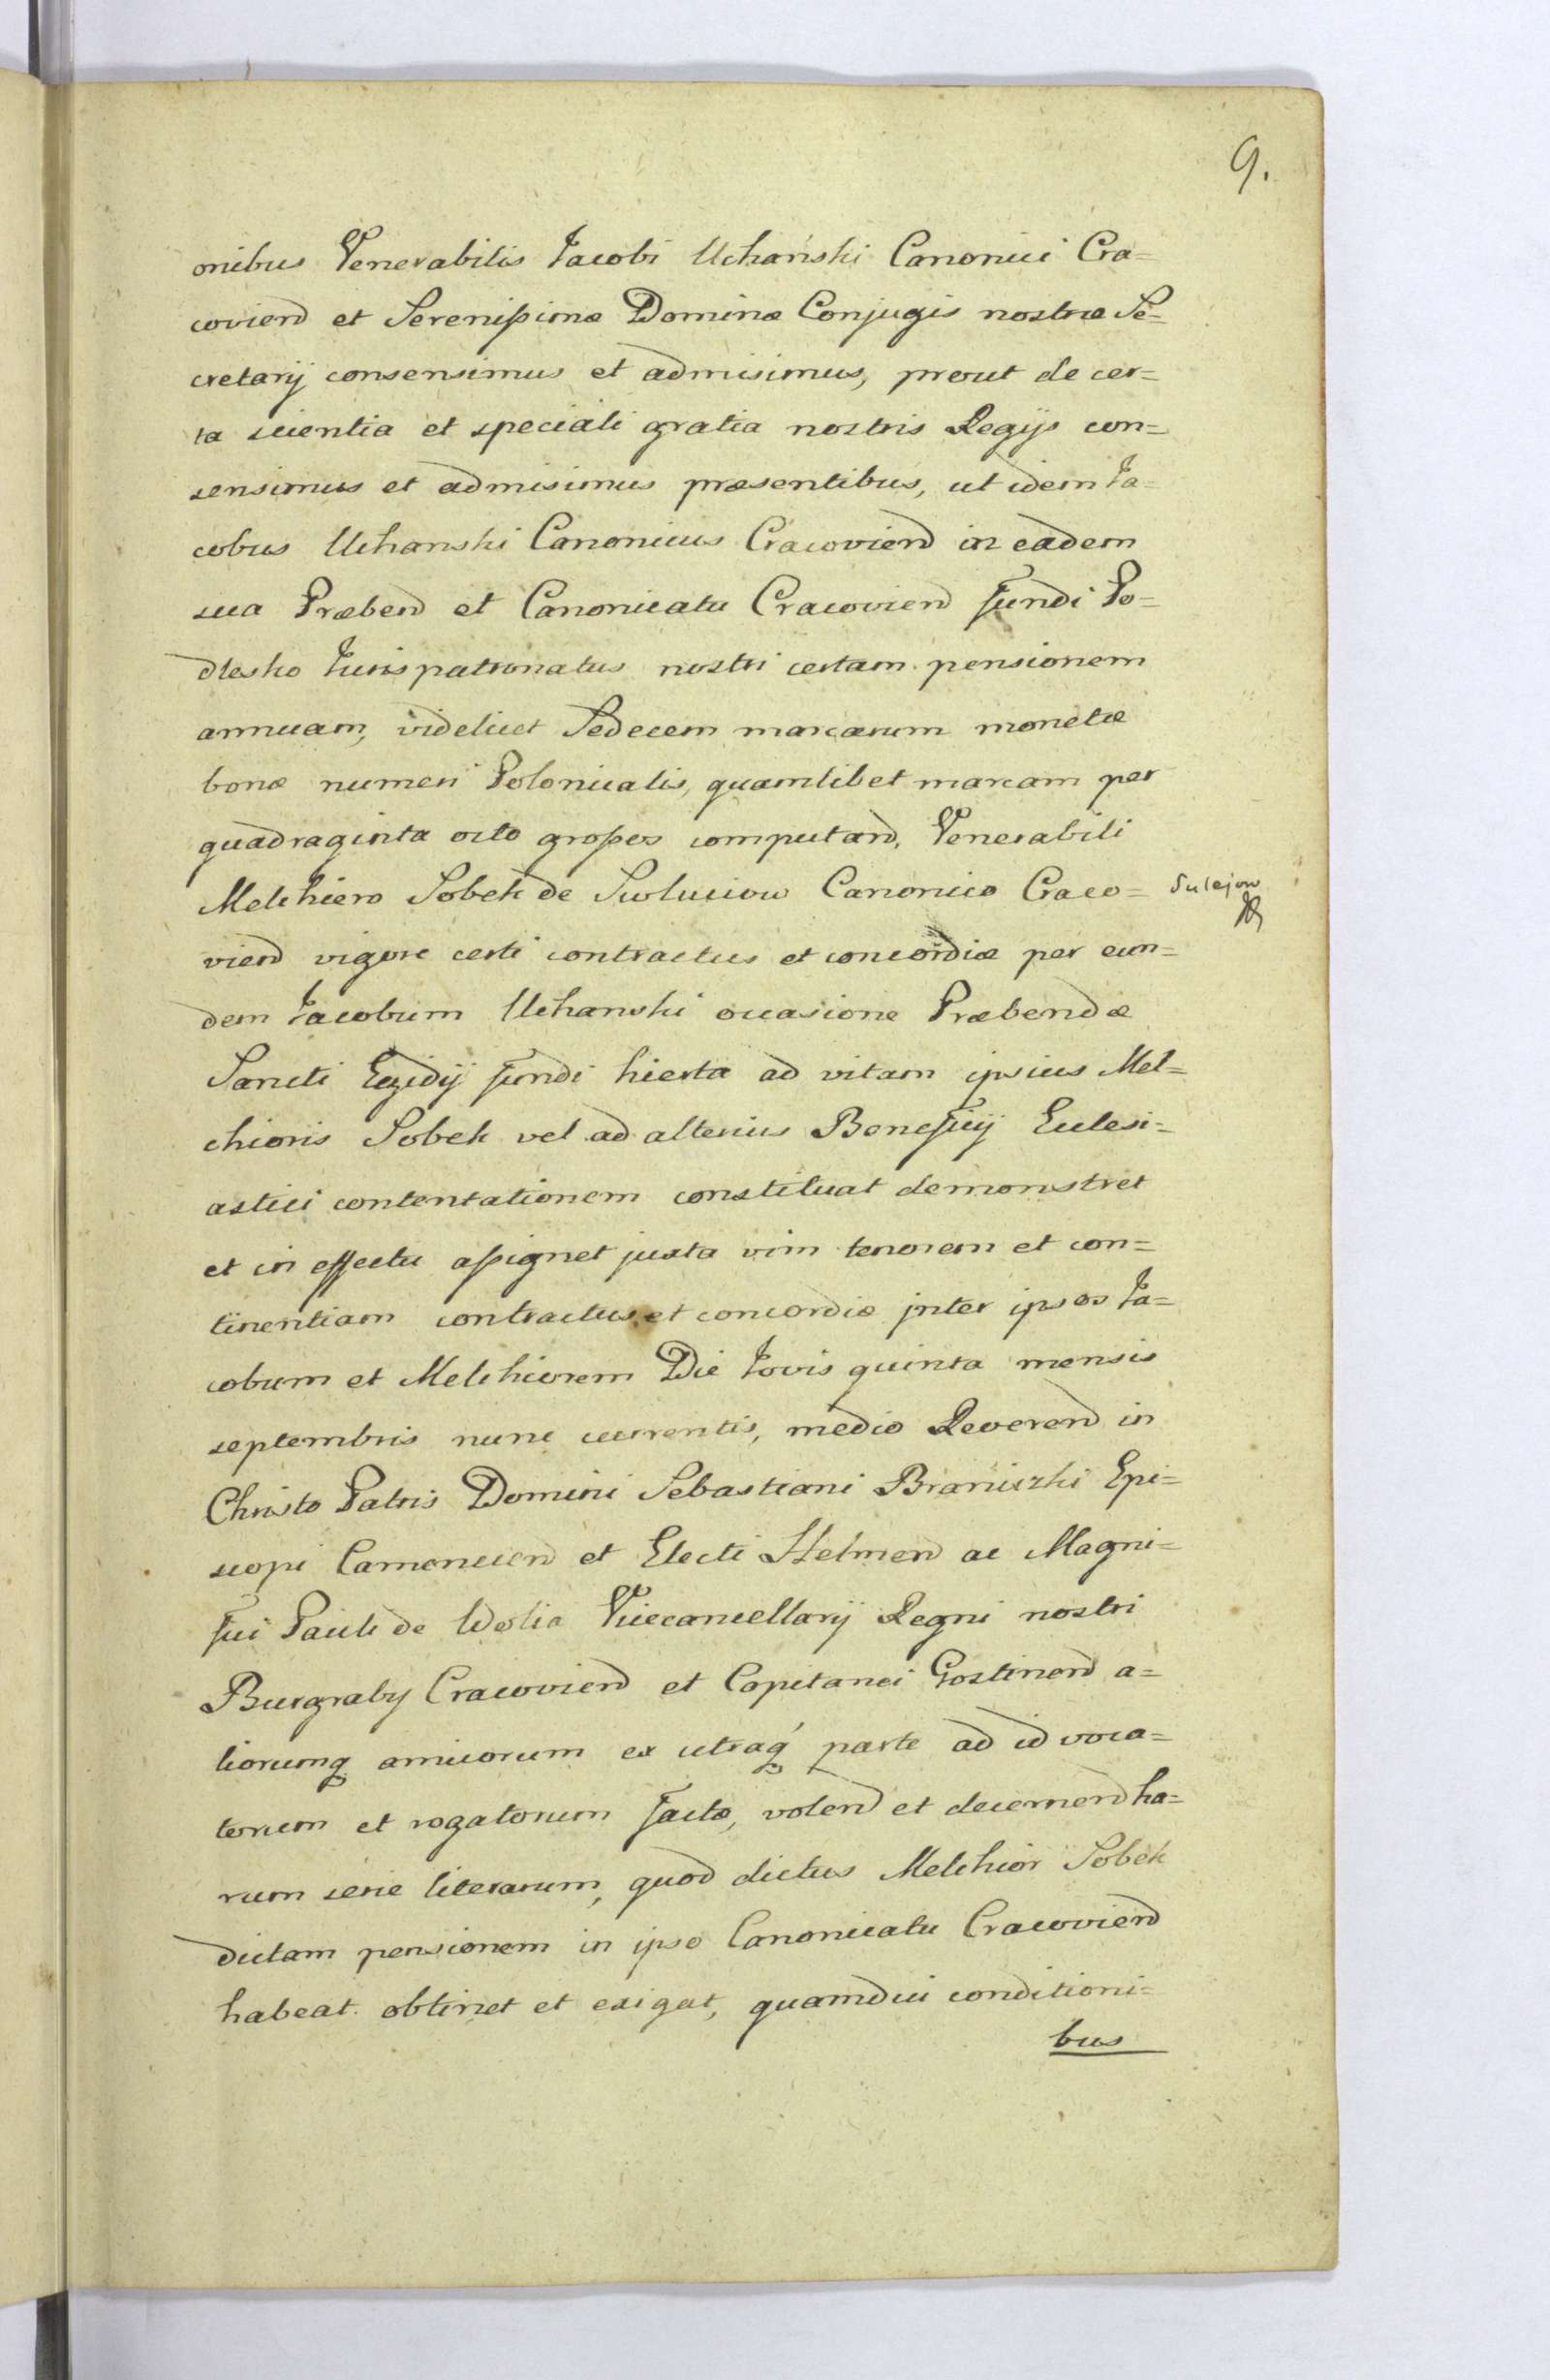 9.
onibus Venerabilis Jacobi Uchański Canonici Cra=
coviend et Serenißimæ Dominæ Conjugis nostræ Se=
cretarij consensimus et admisimus, prout de cer=
ta scientia et speciali gratia nostris Regijs con=
sensimus et admisimus præsentibus, ut idem Ja=
cobus Uchanski Canonicus Cracoviend in eadem
sua Præbend et Canonicatu Cracoviend fundi Po=
dlesko Jurispatronatus nostri certam pensionem
annuam, videlicet Sedecem marcarum monetæ
bonæ numeri Polonicalis, quamlibet marcam per
quadraginta octo großos computand, Venerabili
Melchioro Sobek de Swluciow Canonico Craco= Sulejow
viend vigore certi contractus et concordiæ per eun=
dem Jacobum Uchanski occasione Præbendæ
Sancti Egidij fundi hierta ad vitam ipsius Mel=
chioris Sobek vel ad alterius Beneficij Eclesi=
astici contentationem constituat demonstret
et in effectu aßignet juxta vim tenorem et con=
tinentiam contractus et concordiæ jnter ipsos Ja=
cobum et Melchiorem Die Jovis quinta mensis
septembris nunc currentis, medio Reverend in
Christo Patris Domini Sebastiani Braniczki Epi=
scopi Camenecend et Electi Helmend ac Magni=
fici Pauli de Wolia Vicecancellarij Regni nostri
Burgraby Cracoviend et Capitanei Gostinend a=
liorumq amicorum ex utraq parte ad id voca=
torum et rogatorum factæ, volend et decernend ha=
rum serie literarum, quod dictus Melchior Sobek
dictam pensionem in ipso Canonicatu Cracoviend
habeat obtinet et exigat, quamdiu conditioni=
bus